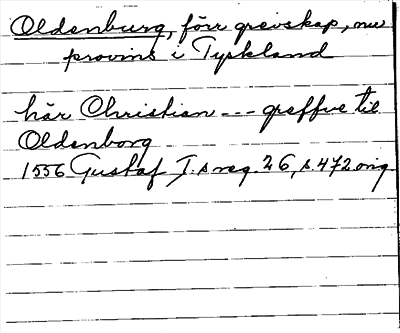 Oldenburg, förr grevskap, nu
provins i Tyskland
här Christian --- greffue til
Oldenborg
1556 Gustaf I.s reg. 26, s. 472 orig.